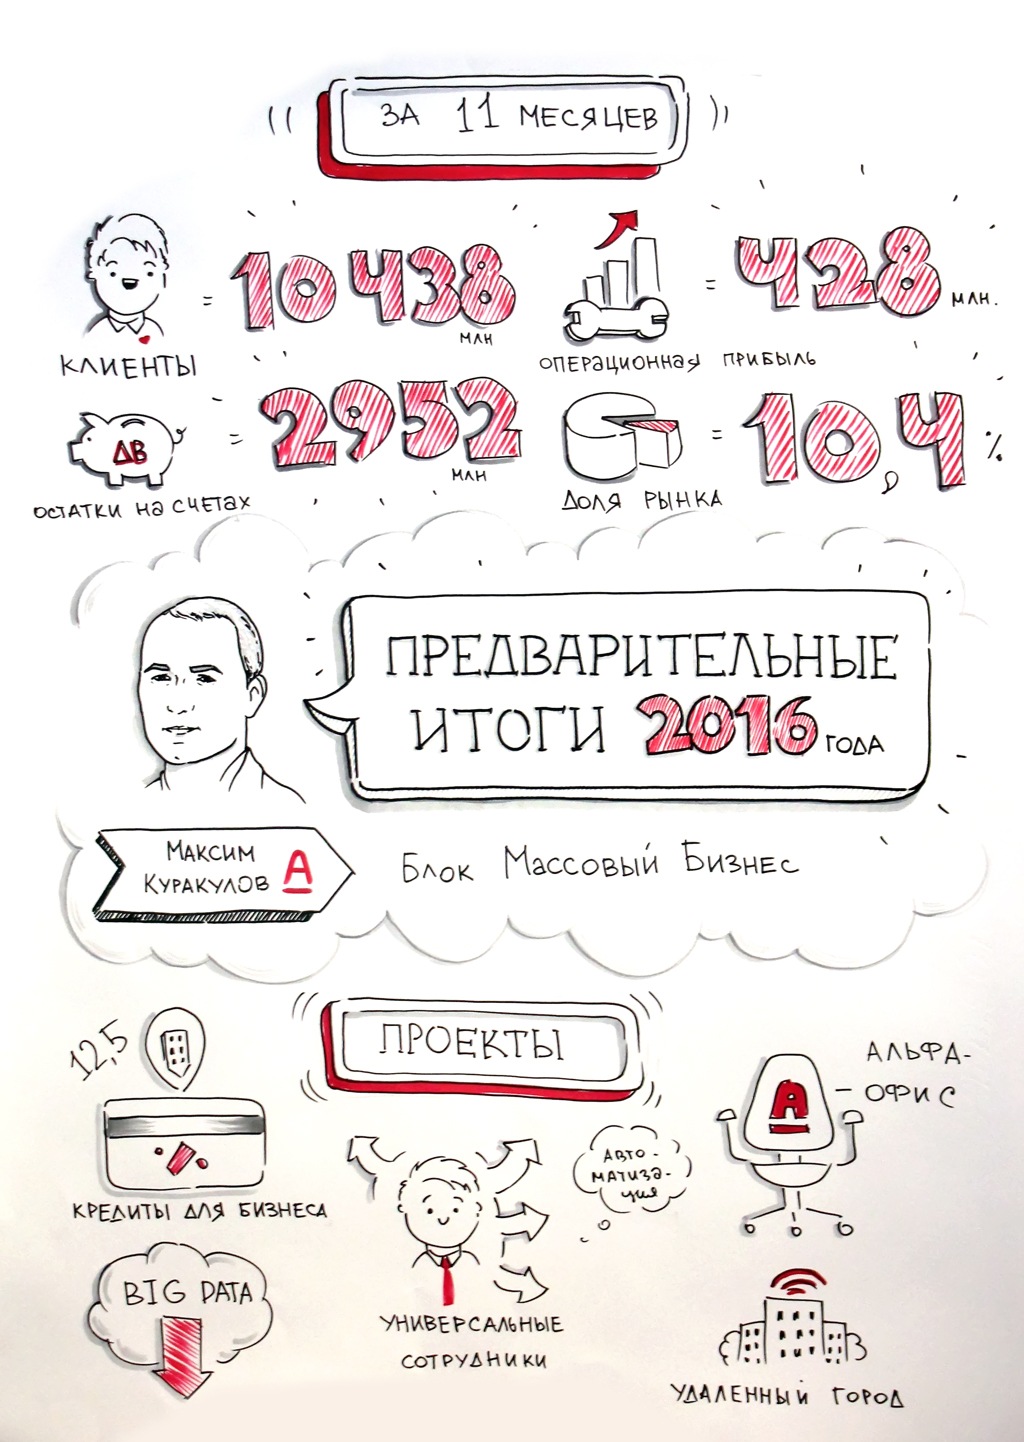 ЗА 11 МЕСЯЦЕВ
= 10 438
млн
КЛИЕНТЫ
= 428 млн.
ОПЕРАЦИОННАЯ ПРИБЫЛЬ
ДВ
= 2952
млн
ОСТАТКИ НА СЧЕТАХ
= 10,4 %
ДОЛЯ РЫНКА
ПРЕДВАРИТЕЛЬНЫЕ
ИТОГИ 2016 ГОДА
МАКСИМ
КУРАКУЛОВ А
Блок Массовый Бизнес
ПРОЕКТЫ
12,5
%
КРЕДИТЫ ДЛЯ БИЗНЕСА
BIG DATA
АВТО-
МАТИЗА-
ЦИЯ
УНИВЕРСАЛЬНЫЕ
СОТРУДНИКИ
А
АЛЬФА-
ОФИС
УДАЛЕННЫЙ ГОРОД